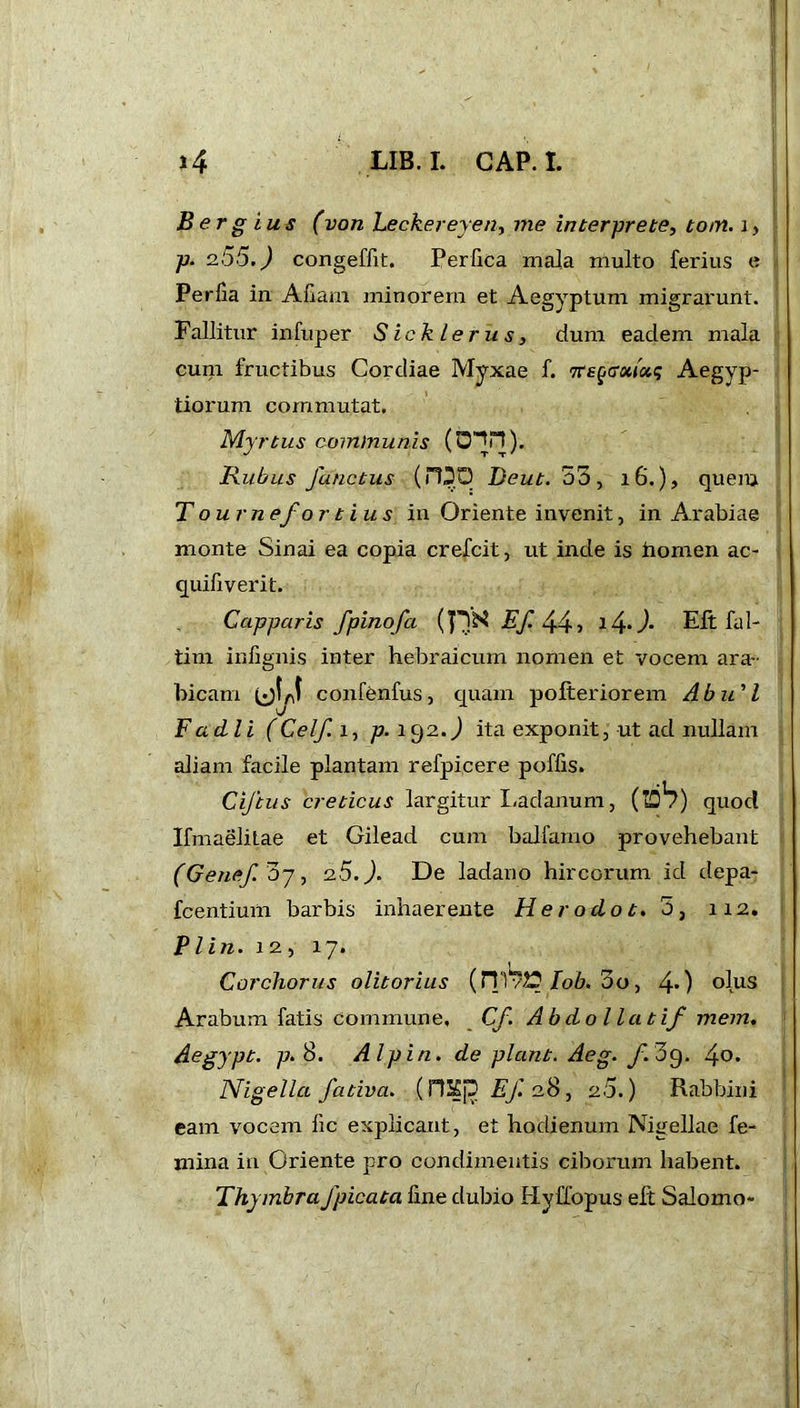 14 LIB. I. CAP. I.
Bergius (von Leckereyen, me interprete, tom. 1,
p. 255.) congeſſit. Perſica mala multo ſerius e
Perſia in Aſiam minorem et Aegyptum migrarunt.
Fallitur inſuper Sicklerus, dum eadem mala
cum fructibus Cordiae Myxae ſ. περσαίας Aegyp-
tiorum commutat.
Myrtus communis (הדס).
Rubus ſanctus (סְנֶה Deut. 33, 16.), quem
Tournefortius in Oriente invenit, in Arabiae
monte Sinai ea copia creſcit, ut inde is nomen ac-
quiſiverit.
Capparis ſpinoſa ( Eſ. 44, 14.). Eſt ſal-
tim inſignis inter hebraicum nomen et vocem ara-
bicam conſenſus, quam poſteriorem Abu'l
Fadli (Celſ. 1, p. 192.) ita exponit, ut ad nullam
aliam facile plantam reſpicere poſſis.
Ciſtus creticus largitur Ladanum, (לֹט) quod
Iſmaëlitae et Gilead cum balſamo provehebant
(Geneſ. 37, 25.). De ladano hircorum id depa-
ſcentium barbis inhaerente Herodot. 3, 112.
Plin. 12, 17.
Corchorus olitorius (מַלּוּחַ Iob. 30, 4.) olus
Arabum ſatis commune. Cf. Abdollatif mem.
Aegypt. p. 8. Alpin. de plant. Aeg. f. 39. 40.
Nigella ſativa. (קֶצַח Eſ. 28, 25.) Rabbini
eam vocem ſic explicant, et hodienum Nigellae ſe-
mina in Oriente pro condimentis ciborum habent.
Thymbra ſpicata ſine dubio Hyſſopus eſt Salomo-